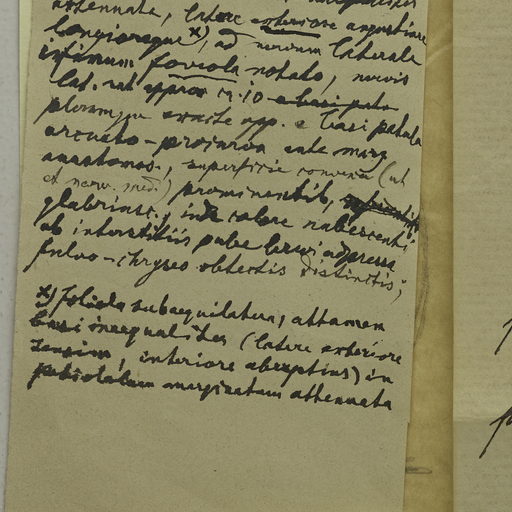 attenuata, latere exteriore angustiore
longioreque x), ad nervum laterale
infimum foveola notato, nervis
lat. utr approx 12-10 a basi pata
plerumque exacte opp. e basi patula
arcuato-proinrva ante marg
anastomos., superficie convexa (ut
et nerv. med) prominentib,
glabriusc., inde colore rubescenti
ab interstitiis pube brevi adpressa
fulvo-chryseo obtectis distinctis;
x) foliola subaequilatera, attamen
basi inaequalites (latere exteriore
sensim, interiore abruptius) in
petiolulum marginatum attenuata